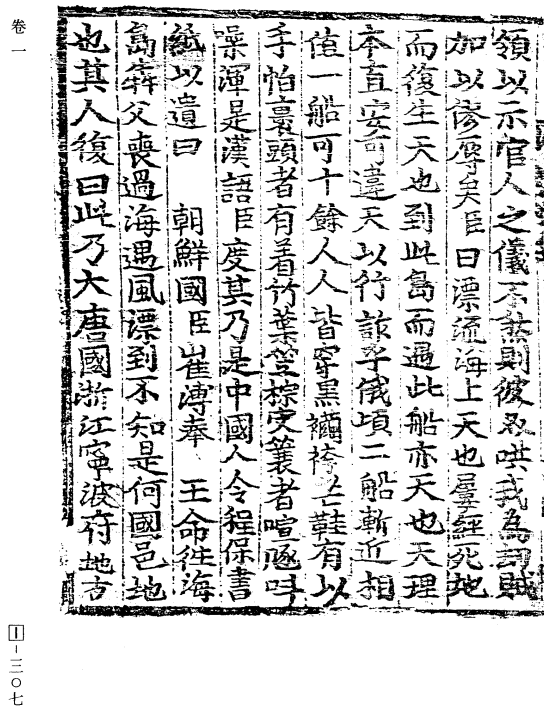 領以示官人之儀不然則彼必哄我為詞賊
加以僇辱矣臣曰漂流海上天也屢經死地
而復生天也到此島而遇此船亦天也天理
本直安可違天以行詐乎俄頃二船漸近相
值一船可十餘人人皆穿黑襦袴芒鞋有以
手帕裹頭者有着竹葉笠棕皮簑者喧豗叫
噪渾是漢語臣度其乃是中國人令程保書
紙以遺曰 朝鮮國臣崔溥奉 王命往海
島犇父喪過海遇風漂到不知是何國邑地
也其人復曰此乃大唐國浙江寧波府地古
卷一
I-三〇七